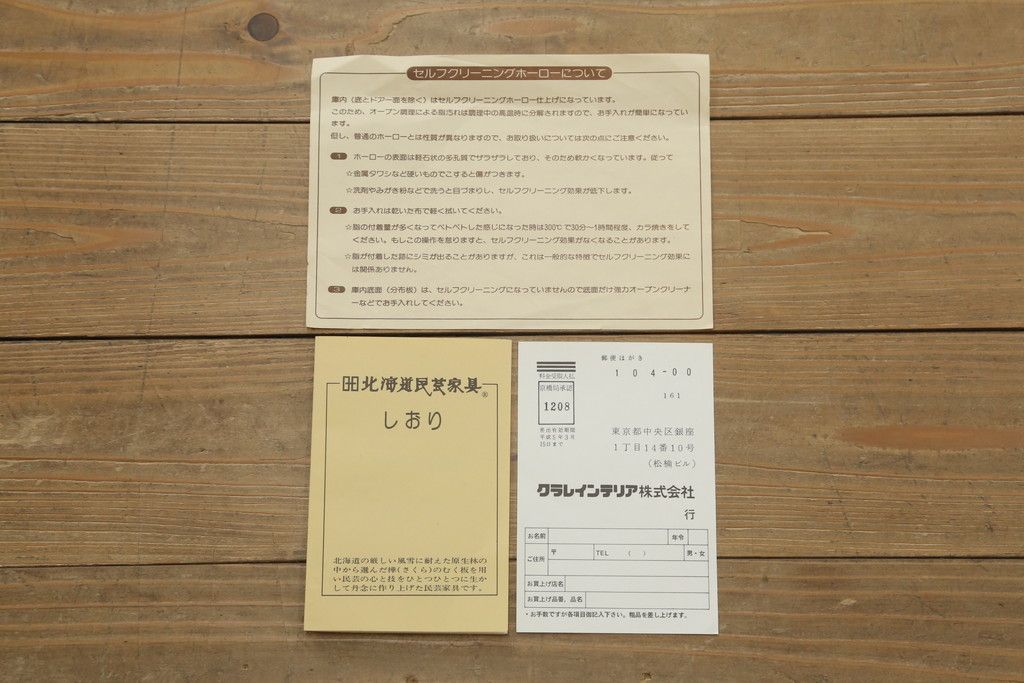 セルフクリーニングホーローについて
庫内（底とドアー面を除く）はセルフクリーニングホーロー仕上げになっています。
このため、オーブン調理による脂汚れは調理中の高温時に分解されますので、お手入れが簡単になってい
ます。
但し、普通のホーローとは性質が異なりますので、お取り扱いについては次の点にご注意ください。
1 ホーローの表面は軽石状の多孔質でザラザラしており、そのため軟かくなっています。従って
☆金属タワシなど硬いものでこすると傷がつきます。
☆洗剤やみがき粉などで洗うと目づまりし、セルフクリーニング効果が低下します。
2 お手入れは乾いた布で軽く拭いてください。
☆脂の付着量が多くなってベトベトした感じになった時は300℃で30分～1時間程度、カラ焼きをして
ください。もしこの操作を怠りますと、セルフクリーニング効果がなくなることがあります。
☆脂が付着した跡にシミが出ることがありますが、これは一般的な特徴でセルフクリーニング効果に
は関係ありません。
3 庫内底面（分布板）は、セルフクリーニングになっていませんので底面だけ強力オーブンクリーナ
ーなどでお手入れしてください。
北海道民芸家具®
しおり
北海道の厳しい風雪に耐えた原生林の
中から選んだ樺(さくら)のむく板を用
い民芸の心と技をひとつひとつに生か
して丹念に作り上げた民芸家具です。
郵便はがき
104-00
161
料金受取人払
京橋局承認
1208
差出有効期間
平成5年3月
15日まで
東京都中央区銀座
1丁目14番10号
（松楠ビル）
クラレインテリア株式会社
行
お名前
年令
ご住所
〒
TEL （ ）
男・女
お買上げ店名
お買上げ品番、品名
・お手数ですが各項目御記入下さい。粗品を差し上げます。